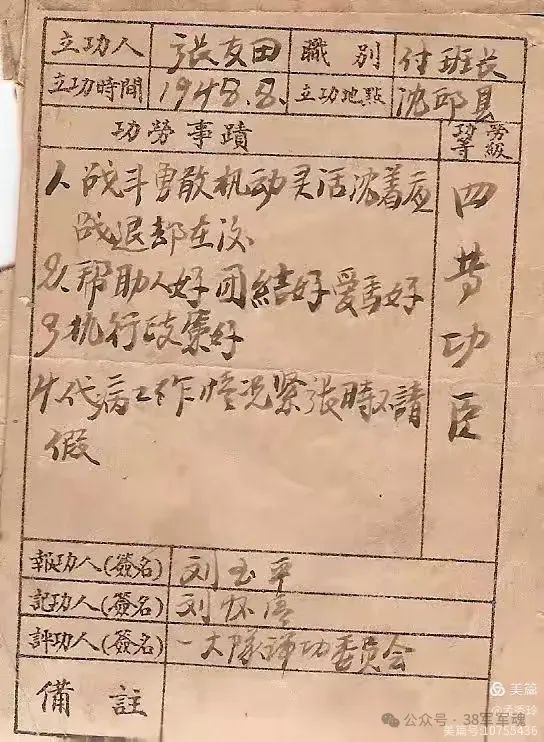 立功人 張友田 職別 付班长
立功時間 1948.8. 立功地點 沈邱县
功勞事蹟 功勞等級
1、战斗勇敢机动灵活沈着应
战退却在后
2、帮助人好团結好爱兵好
3 执行政策好
4 代病工作情况紧张時不請
假
四等功臣
報功人(簽名) 刘玉平
記功人(簽名) 刘怀
評功人(簽名) 一大隊评功委员会
備註
美篇
@孟秀玲
公众号·38军军魂
美篇号:10755436